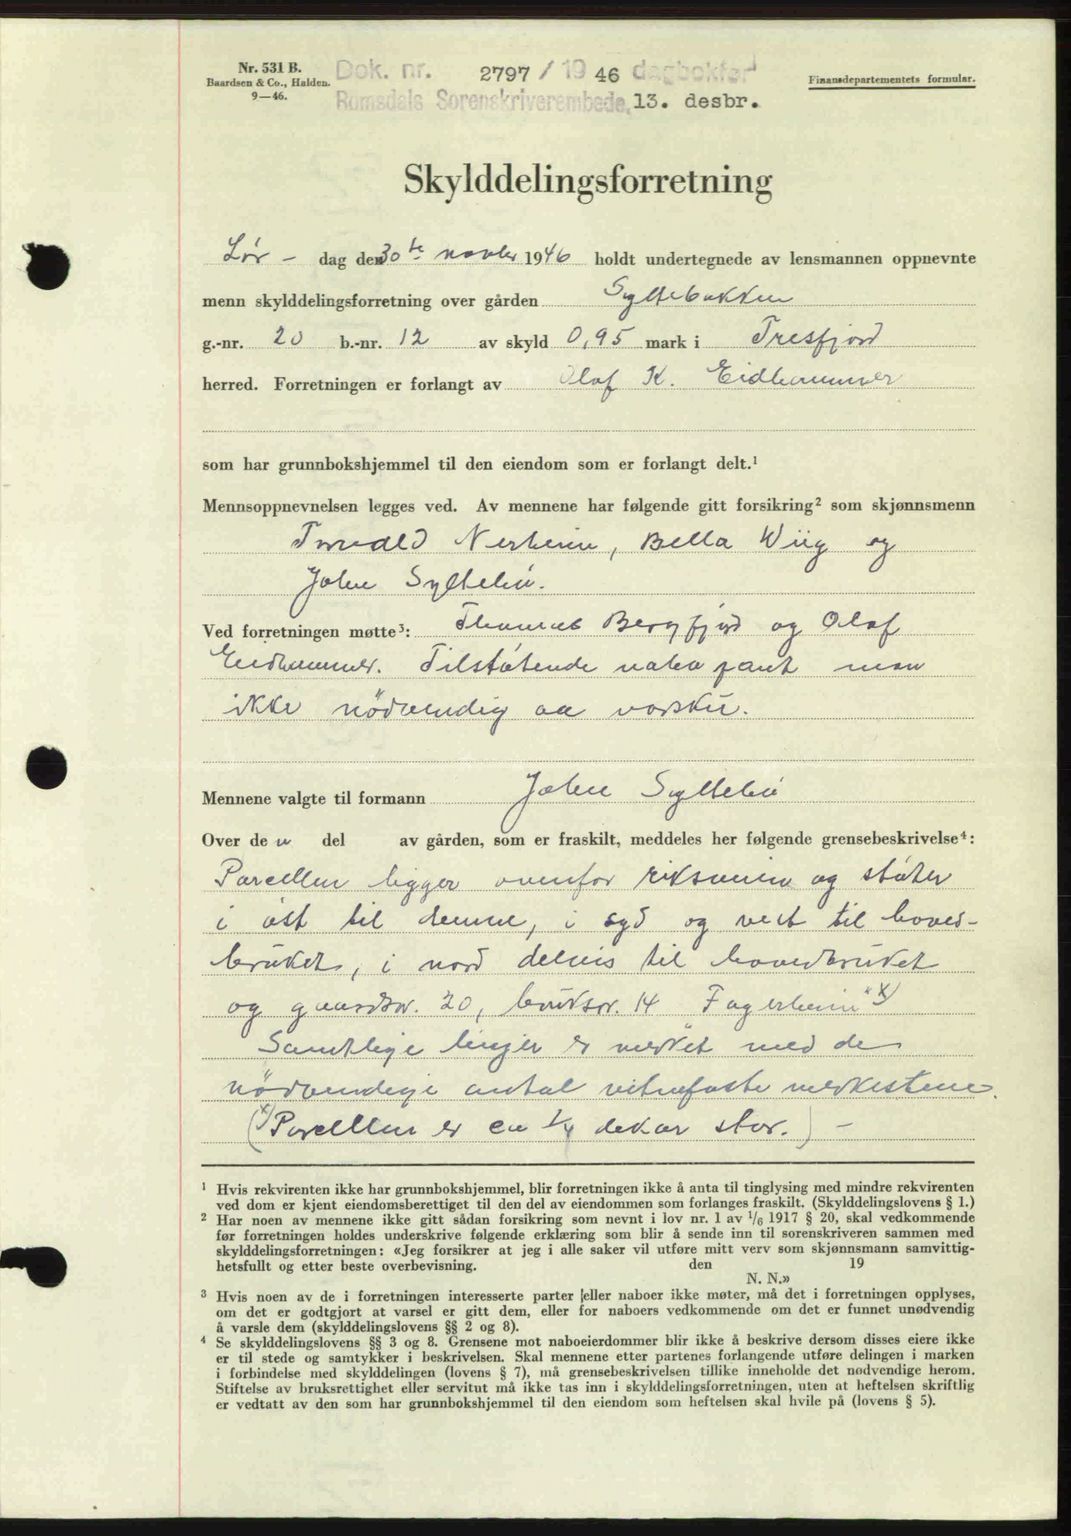 Nr. 531 B.
Baardsen & Co., Halden.
9—46.
Dok. nr. 2797 / 19 46 dagbokført
Romsdals Sorenskriverembede, 13. desbr.
Finansdepartementets formular.
Skylddelingsforretning
Lør – dag den 30te novbr 1946 holdt undertegnede av lensmannen oppnevnte
menn skylddelingsforretning over gården Syltebakken
g.-nr. 20 b.-nr. 12 av skyld 0,95 mark i Tresfjord
herred. Forretningen er forlangt av Olaf K. Eidhammer
som har grunnbokshjemmel til den eiendom som er forlangt delt.¹
Mennsoppnevnelsen legges ved. Av mennene har følgende gitt forsikring² som skjønnsmenn
Torvald Nerheim, Bella Wiig og
John Syltebø.
Ved forretningen møtte³: Thomas Bergfjord og Olaf
Eidhammer. Tilstøtende naboer fant man
ikke nödvendig aa varsku.
Mennene valgte til formann John Syltebø
Over den del av gården, som er fraskilt, meddeles her følgende grensebeskrivelse⁴:
Parcellen ligger ovenfor riksveien og støter
i öst til denne, i syd og vest til hoved-
bruket, i nord delvis til hovedbruket
og gaardsnr. 20, bruksnr. 14 Fagerheim" x)
Samtlige linjer er merket med de
nödvendige antal vitnefaste merkestene.
(x) Parcellen er ca 1/4 dekar stor.) –
¹ Hvis rekvirenten ikke har grunnbokshjemmel, blir forretningen ikke å anta til tinglysing med mindre rekvirenten
ved dom er kjent eiendomsberettiget til den del av eiendommen som forlanges fraskilt. (Skylddelingslovens § 1.)
² Har noen av mennene ikke gitt sådan forsikring som nevnt i lov nr. 1 av 1/6 1917 § 20, skal vedkommende
før forretningen holdes underskrive følgende erklæring som blir å sende inn til sorenskriveren sammen med
skylddelingsforretningen: «Jeg forsikrer at jeg i alle saker vil utføre mitt verv som skjønnsmann samvittig-
hetsfullt og etter beste overbevisning. den 19
N. N.»
³ Hvis noen av de i forretningen interesserte parter eller naboer ikke møter, må det i forretningen opplyses,
om det er godtgjort at varsel er gitt dem, eller for naboers vedkommende om det er funnet unødvendig
å varsle dem (skylddelingslovens §§ 2 og 8).
⁴ Se skylddelingslovens §§ 3 og 8. Grensene mot naboeierdommer blir ikke å beskrive dersom disses eiere ikke
er til stede og samtykker i beskrivelsen. Skal mennene etter partenes forlangende utføre delingen i marken
i forbindelse med skylddelingen (lovens § 7), må grensebeskrivelsen tillike inneholde det nødvendige herom.
Stiftelse av bruksrettighet eller servitut må ikke tas inn i skylddelingsforretningen, uten at heftelsen skriftlig
er vedtatt av den som har grunnbokshjemmel til den eiendom som heftelsen skal hvile på (lovens § 5).